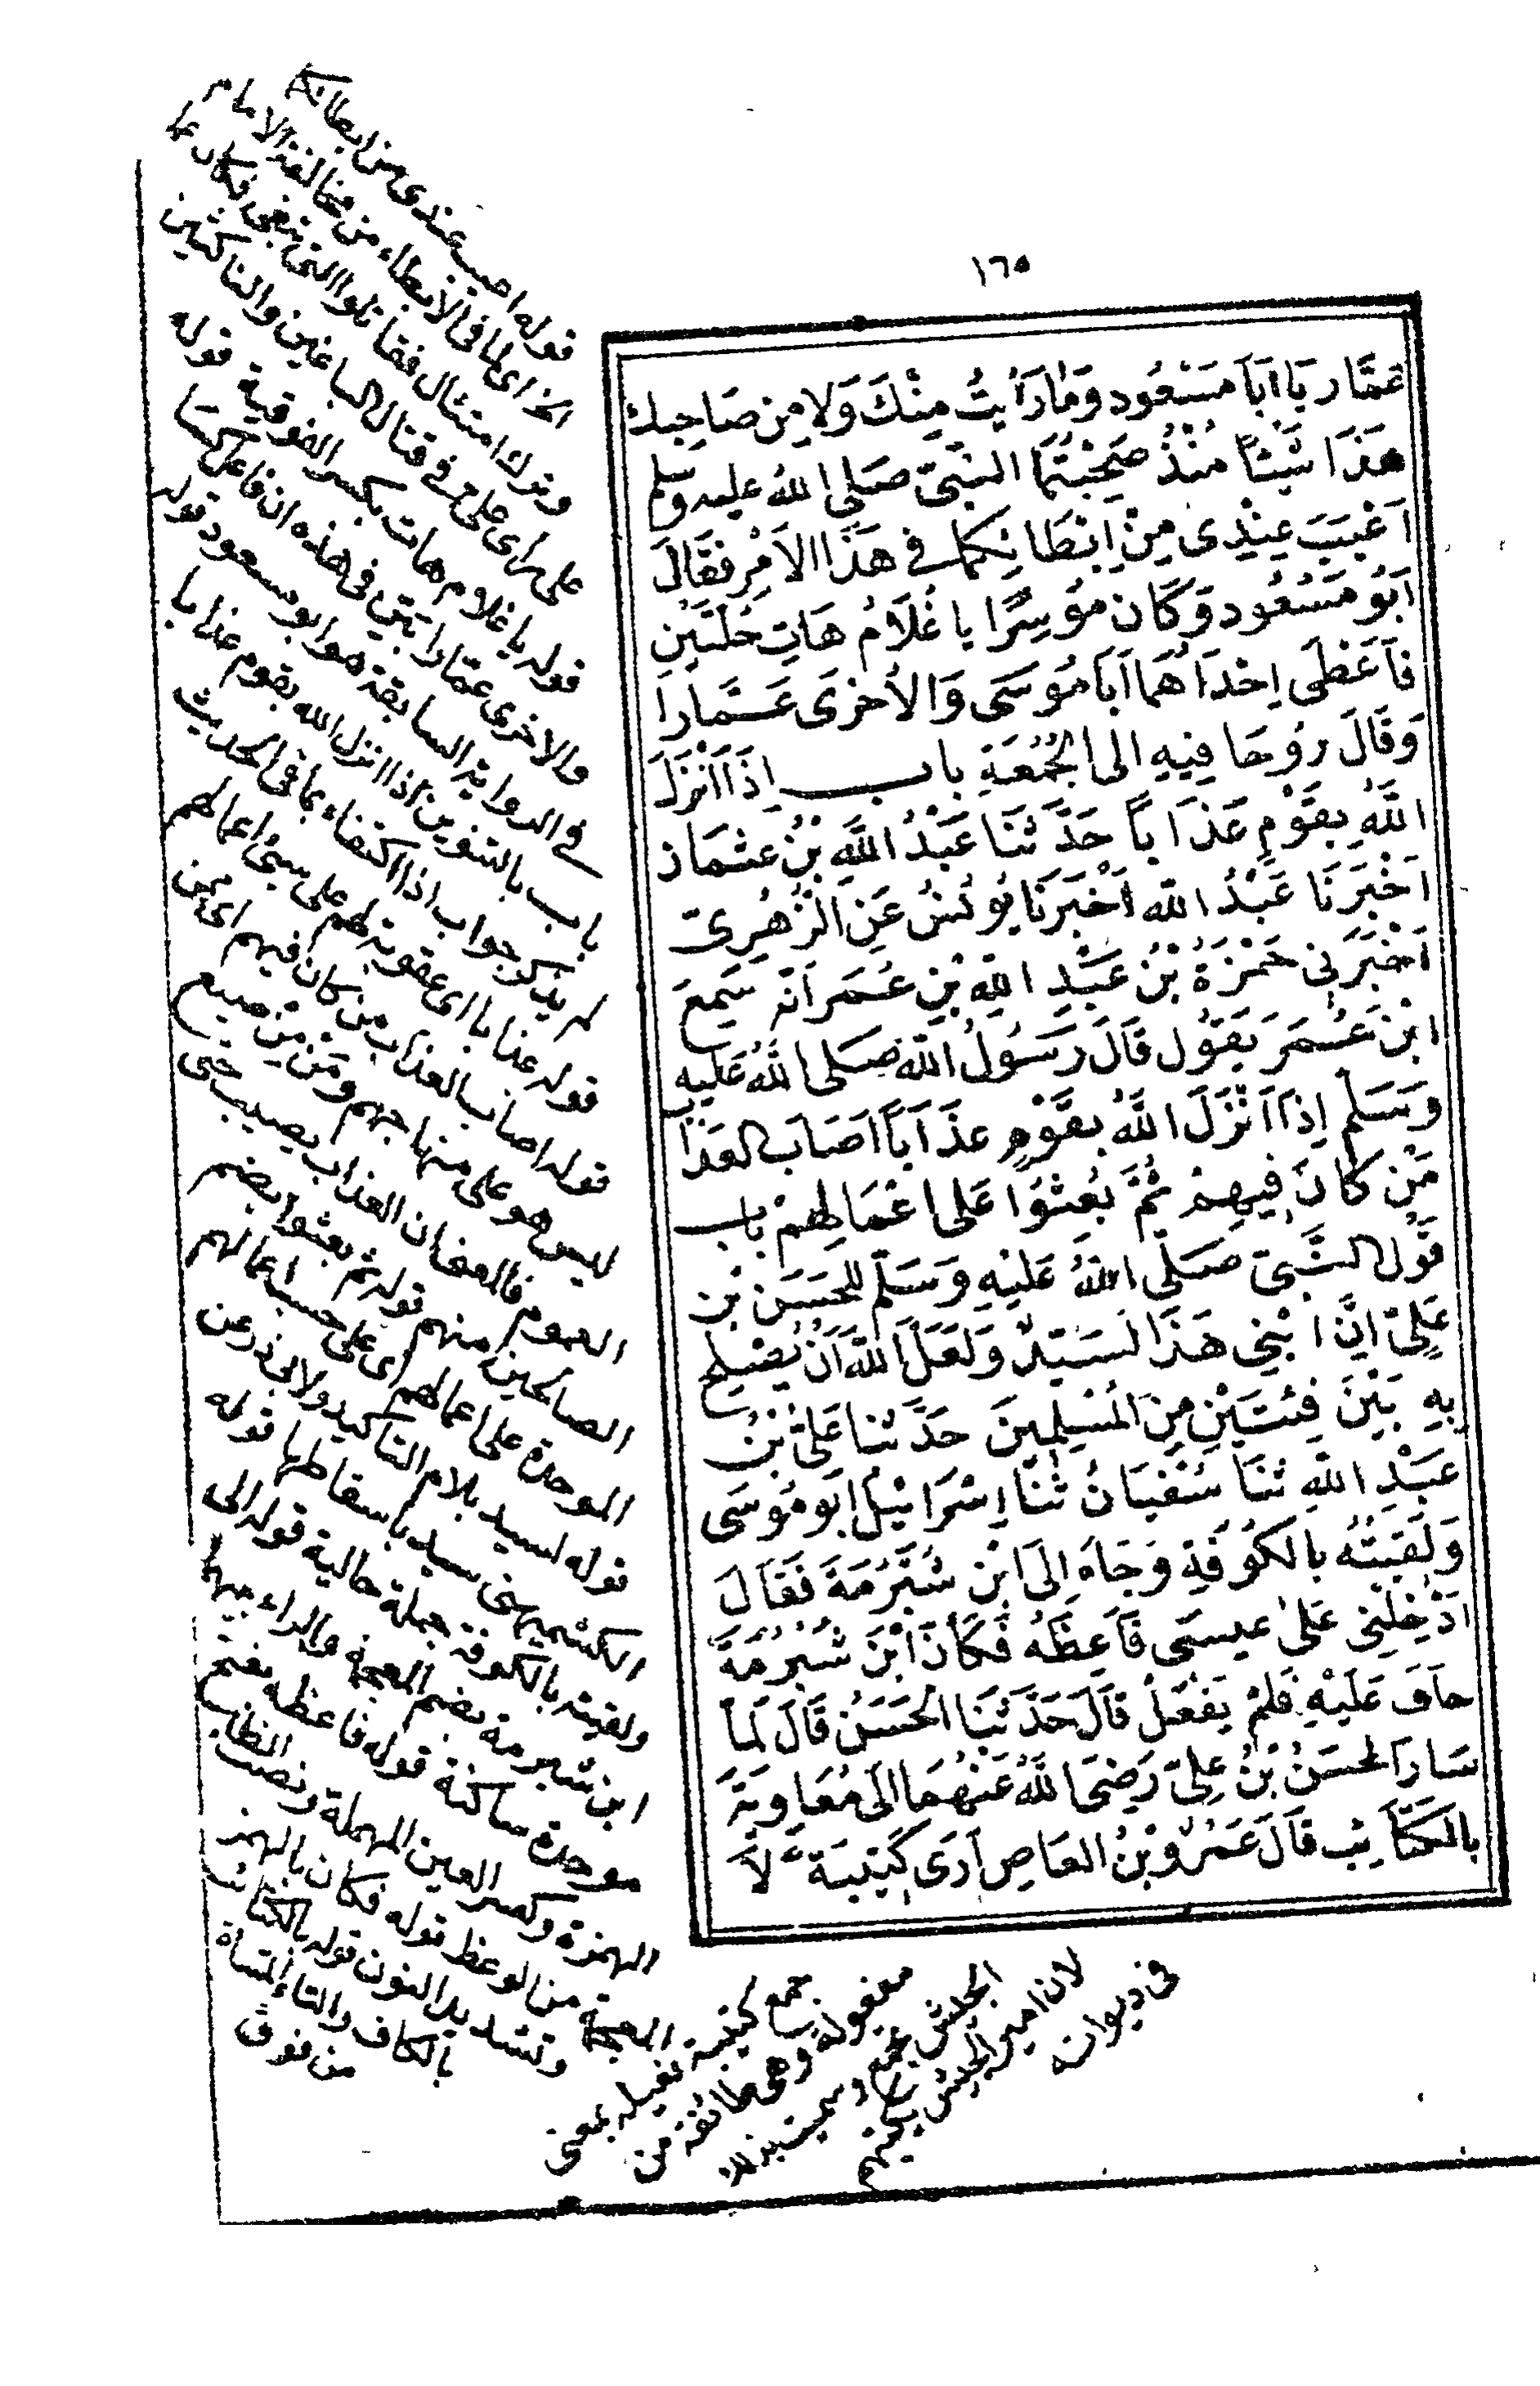 ١٦٥
عَمَّار يَا اَبَا مَسْعُود وَمَا رَاَيْتُ مِنْكَ وَلَا مِن صَاحِبِكَ
هَذَا شَيْئاً مُنْذُ صَحِبْتُمَا النَّبِىّ صَلى اللهُ عليه وسلم
اَعْيَبَ عِنْدِى مِنْ اِبْطَائِكُمَا فِى هَذَا الاَمْرِ فَقَالَ
اَبُو مَسْعُود وَكَان مُوسِرًا يا غُلَامُ هَاتِ حُلَّتَيْنِ
فَاَعْطَى اِحْدَاهُمَا اَبَا مُوسَى وَالاُخْرَى عَمَّارًا
وَقَالَ رُوحَا فِيهِ الى الْجُمُعَةِ باب اِذَا اَنْزَلَ
اللَّهُ بِقَوْمٍ عَذَاباً حَدَّثَنَا عَبْدُ اللَّهِ بْنُ عُثمَان
اَخْبَرَنَا عَبْدُ الله اَخْبَرَنَا يُونُسُ عَنِ الزُّهْرِىّ
اَخْبَرَنِى حَمْزَةُ بْنُ عَبْدِ اللهِ بْنِ عُمَرَ اَنَّه سَمِعَ
ابْنَ عُمَرَ يَقُول قَالَ رَسُولُ اللهِ صَلى اللَّهُ عَلَيهِ
وَسَلم اِذَا اَنْزَلَ اللَّهُ بِقَوْمٍ عَذَاباً اَصَابَ العَذَابُ
مَنْ كَانَ فِيهِمْ ثُمَّ بُعِثُوا عَلى اَعْمَالِهِمْ باب
قَوْل النَّبىّ صَلَّى اللهُ عَلَيْهِ وَسَلّم لِلحَسَن بْن
عَلىّ اِنَّ ابْنِى هَذَا لَسَيّدٌ وَلَعَلَّ اللهَ اَنْ يُصْلِحَ
بِهِ بَيْنَ فِئَتَيْنِ مِنَ الْمُسْلِمِينَ حَدَّثنا عَلىُّ بْنُ
عَبْدِ اللهِ ثَنَا سُفْيَانُ ثَنَا اِسْرَائيلُ اَبُو مُوسَى
وَلَقِيتُهُ بِالكُوفَةِ وَجَاءَ اِلَى ابْن شُبْرُمَةَ فَقَالَ
اَدْخِلْنِى عَلى عيسَى فَاَعِظَهُ فَكَاَنَّ ابْنَ شُبْرُمَةَ
خافَ عَلَيْهِ فَلَمْ يَفْعَلْ قَالَ حَدَّثَنَا الْحَسَنُ قَالَ لَمّا
سَارَ الحسَنُ بْنُ عَلِىّ رَضِىَ اللَّهُ عَنْهُمَا اِلَى مُعَاوِيَةَ
بِالكَتَائِبِ قَالَ عَمْرُو بْنُ العَاصِ اَرَى كَتِيبَةً لَا
قوله احب عندى من ابطائكما
الخ اى لما فى الابطاء من مخالفة الامام
وترك امتثال فقاتلوا التى تبغى فكان
على راى على فى قتال الباغين والناكثين
قوله يا غلام هات بكسر الفوقية قوله
والاخرى عمارا بيّن فى هذه ان فاعل
فى الرواية السابقة هو ابو مسعود قوله
باب بالتنوين اذا انزل الله بقوم عذابا
لم يذكر جواب اذا اكتفاء بما فى الحديث
قوله عذابا اى عقوبة لهم على سيئ اعمالهم
قوله اصاب العذاب من كان فيهم اى ممن
ليس هو على منهاجهم ومن من صيغ
العموم فالمعنى ان العذاب يصيب حتى
الصالحين منهم قوله ثم بعثوا بضم
الموحدة على اعمالهم اى على حسب اعمالهم
قوله لسيد بلام التاكيد ولابى ذر عن
الكشميهنى سيد باسقاطها قوله
ولقيته بالكوفة جملة حالية قوله الى
ابن شبرمة بضم المعجمة والراء بينهما
موحدة ساكنة قوله فاعظه بفتح
الهمزة وكسر العين المهملة ونصب الظاء
المعجمة من الوعظ قوله فكان بالهمز
وتشديد النون قوله بالكتائب
بالكاف والتاء المثناة
من فوق
جمع كتيبة فعيلة بمعنى
مفعولة وهى طائفة من
الجيش تجتمع
لان امير الجيش
فى ديوانه